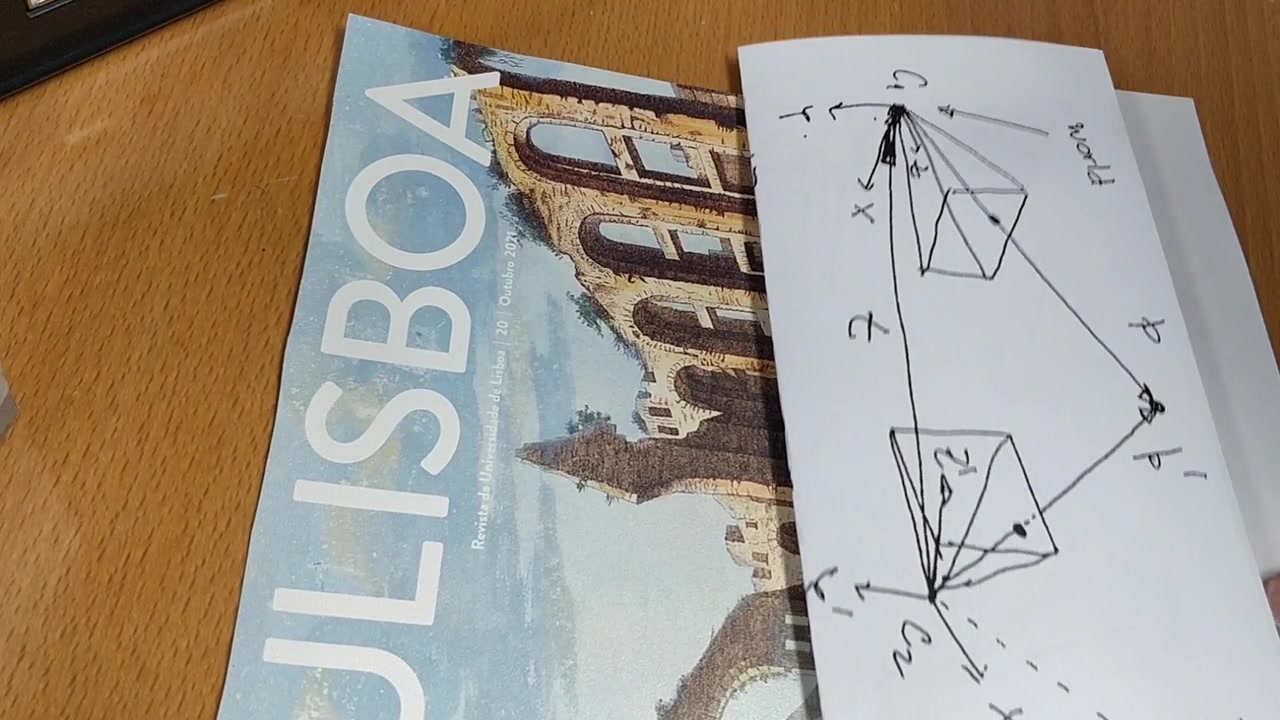 ULISBOA
Revista da Universidade de Lisboa | 20 | Outubro 2021
C1
world
Y
X
Z
T
P
P'
Z'
Y'
C2
X